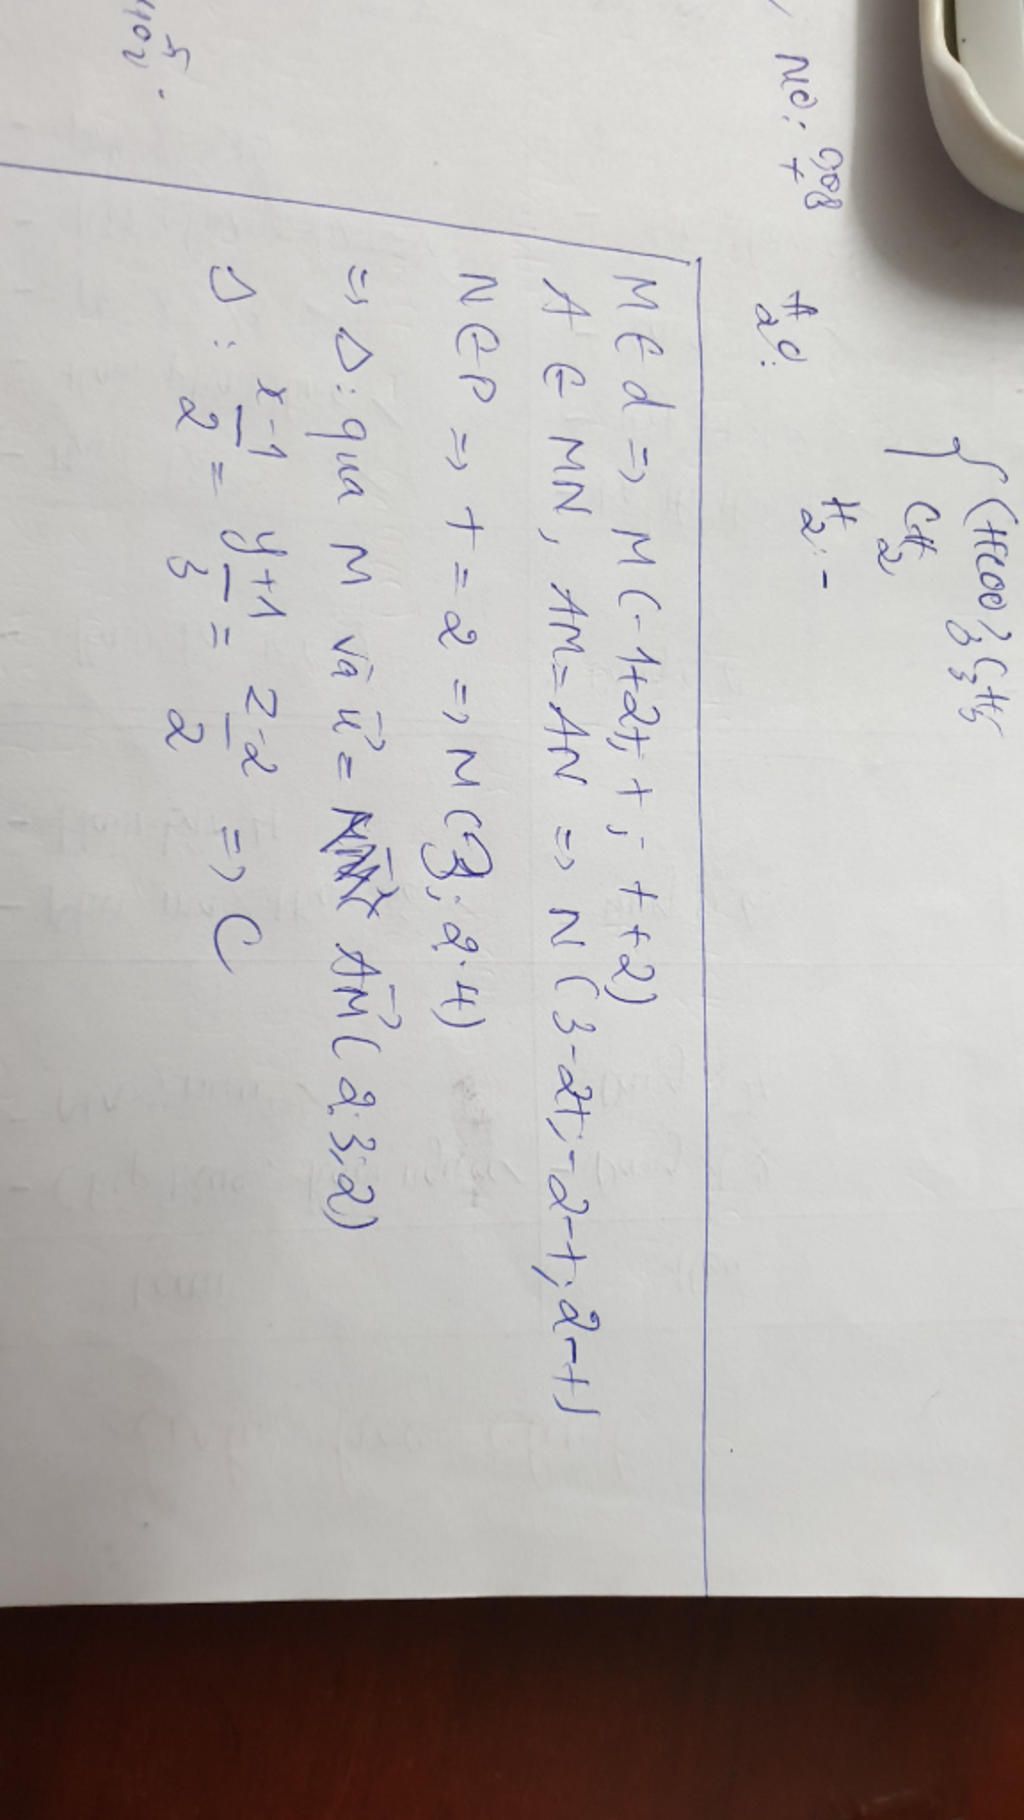 (HCOO)3C3H5
CH2
H2: -
NO: 0,08
H2O:
M ∈ d => M(-1+2t; t; t+2)
A ∈ MN, AM = AN => N(3-2t; -2-t; 2-t)
N ∈ P => t = 2 => M(3; 2; 4)
=> Δ: qua M và u⃗ = AM⃗(2; 3; 2)
Δ: x-1/2 = y+1/3 = z-2/2 => C